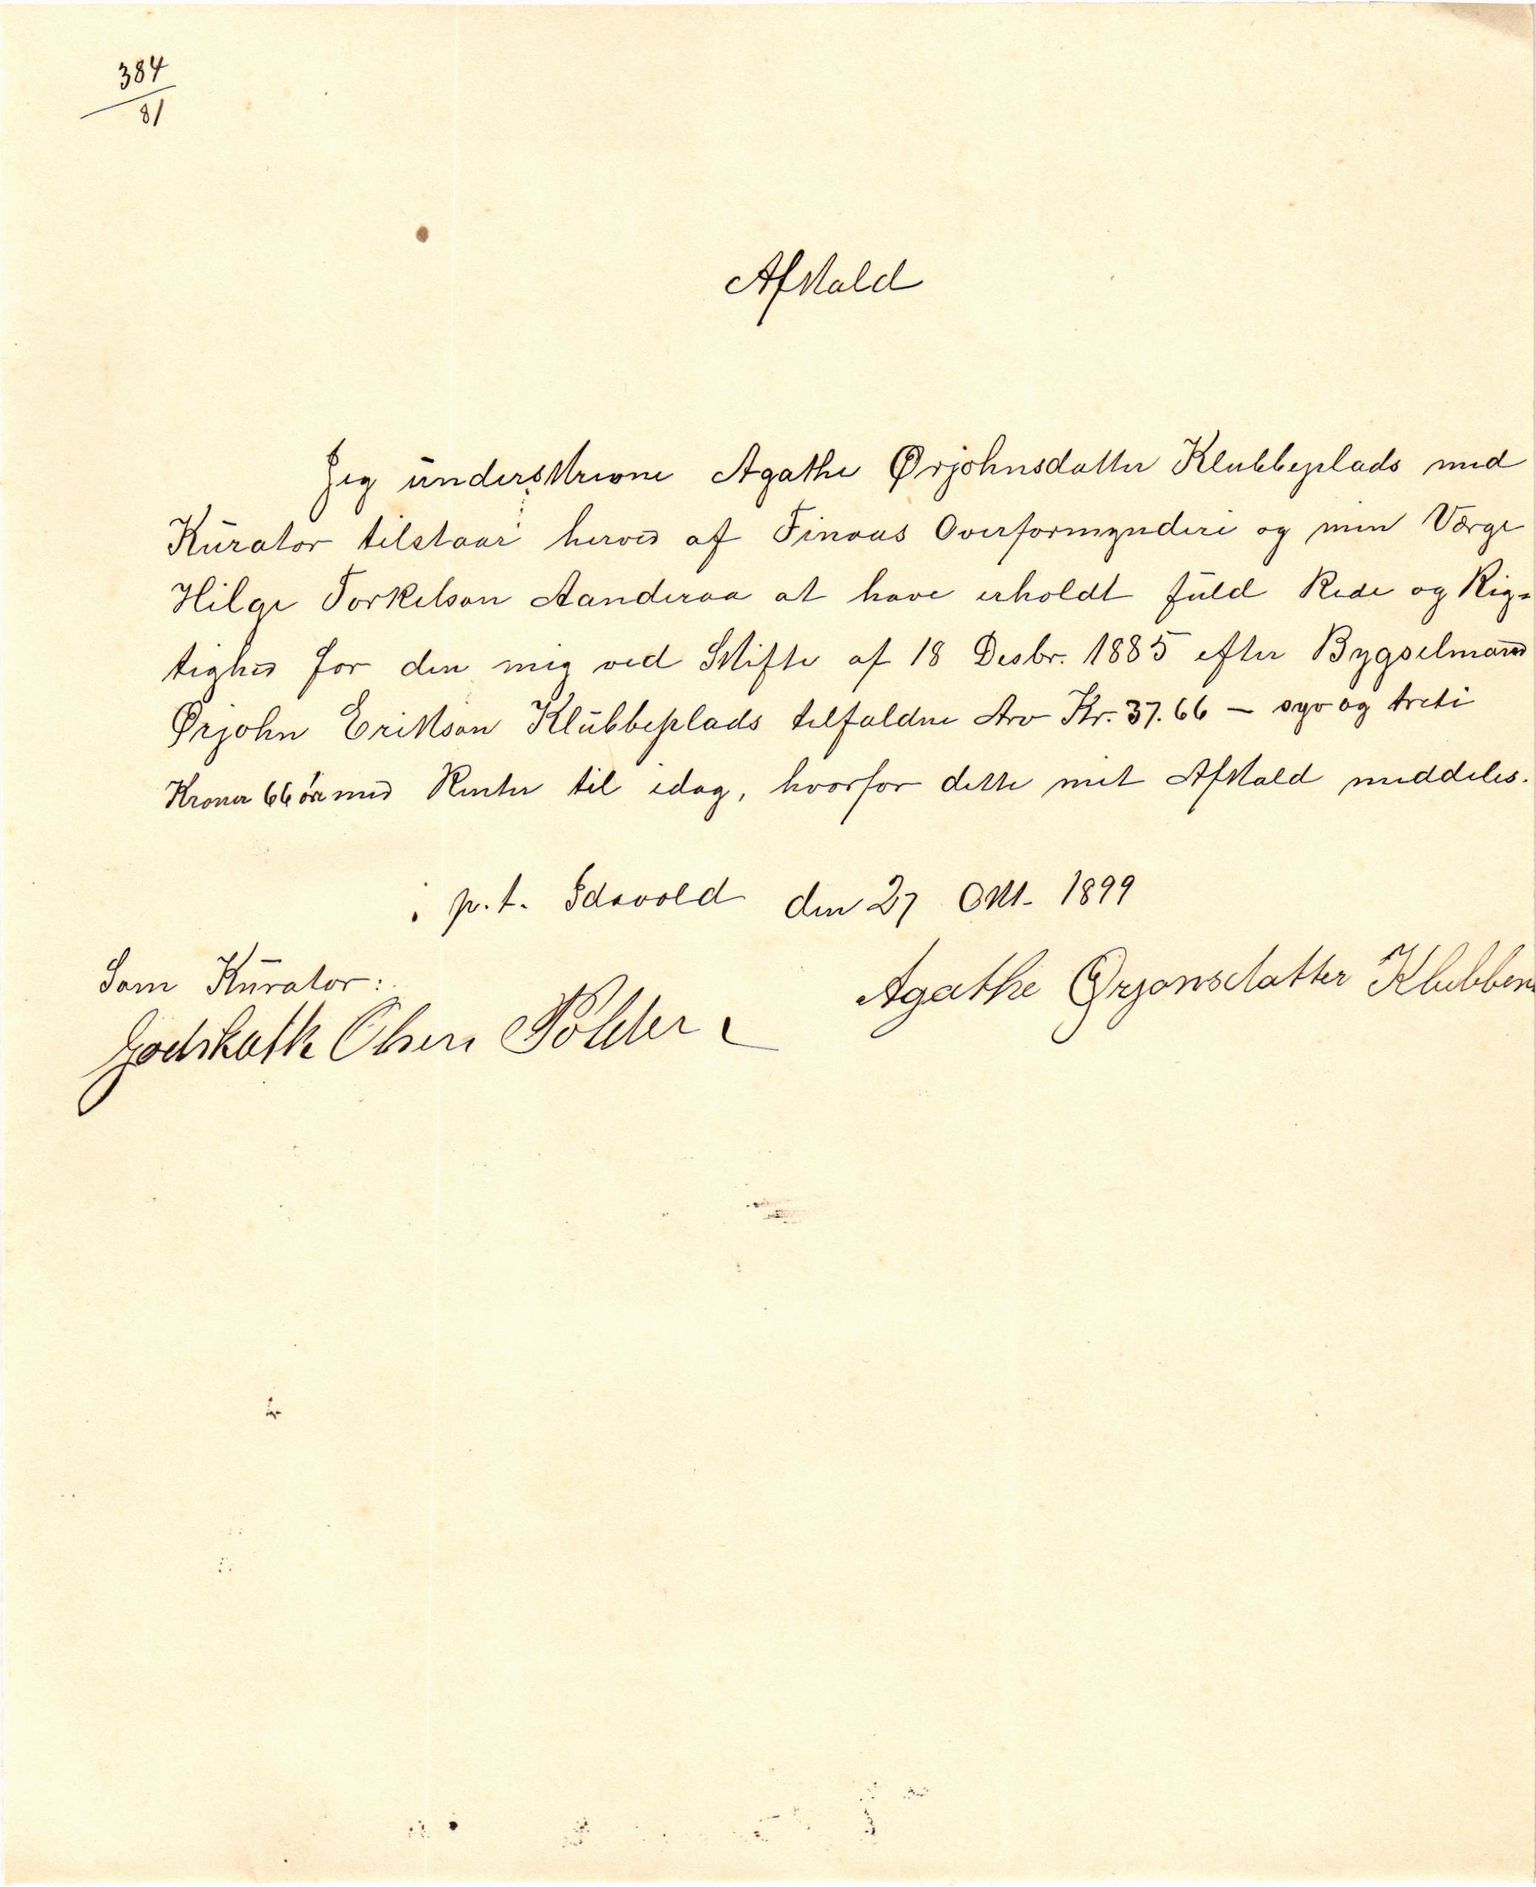 384
81
Afkald
Jeg underskrevne Agathe Ørjohnsdatter Klubbeplads med
Kurator tilstaar herved af Finaas Overformynderi og min Værge
Helge Torkelson Aanderaa at have erholdt fuld Rede og Rig=
tighed for den mig ved Skifte af 18 Desbr. 1885 efter Bygselmand
Ørjohn Erikson Klubbeplads tilfaldne Arv Kr. 37.66 — syv og treti
Kroner 66 øre med Renter til idag, hvorfor dette mit Afkald meddeles.
p.t. Idavold den 27 Okt. 1899
Som Kurator:
Agathe Ørjonsdatter Klubben
Godskalk Olsen Polden